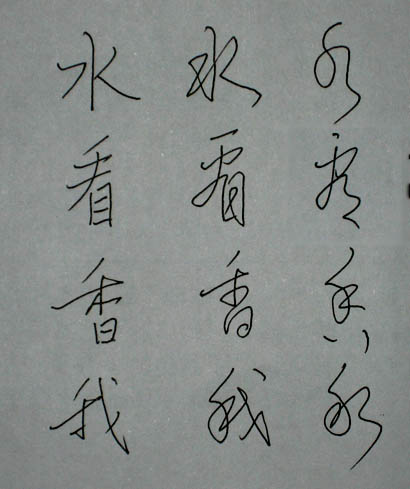 水 水 水
看 看 看
香 香 香
我 我 我